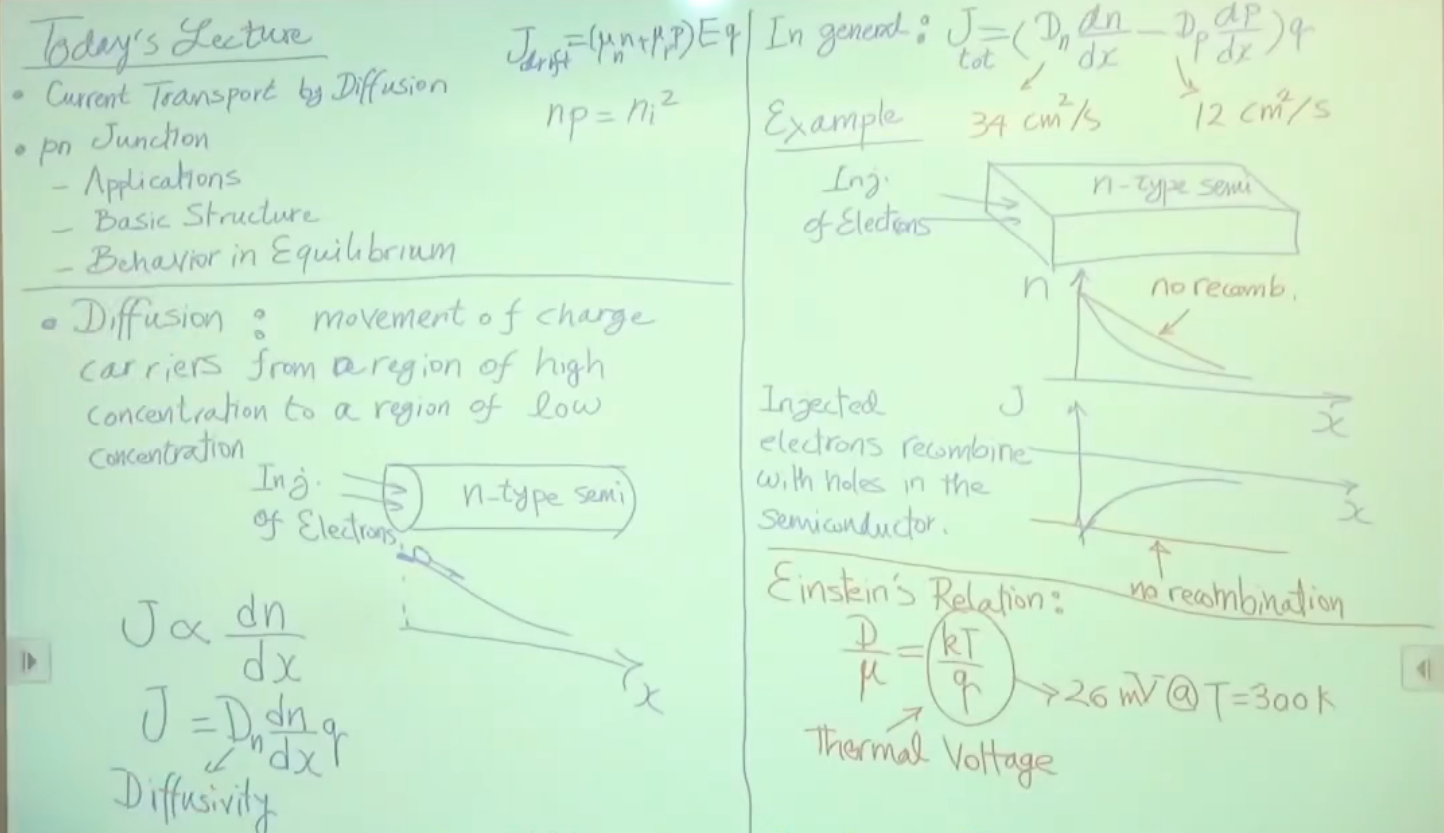 Today's Lecture
• Current Transport by Diffusion
• pn Junction
- Applications
- Basic Structure
- Behavior in Equilibrium
J_drift = (μ_n n + μ_p p) E q
np = n_i²
• Diffusion : movement of charge
carriers from a region of high
concentration to a region of low
concentration
Inj.
of Electrons
n-type semi
x
J ∝ dn/dx
J = D_n dn/dx q
Diffusivity
In general : J_tot = (D_n dn/dx - D_p dp/dx) q
34 cm²/s 12 cm²/s
Example
Inj.
of Electrons
n-type semi
n
no recomb.
x
Injected
electrons recombine
with holes in the
semiconductor.
J
x
no recombination
Einstein's Relation :
D/μ = kT/q → 26 mV @ T=300K
Thermal Voltage